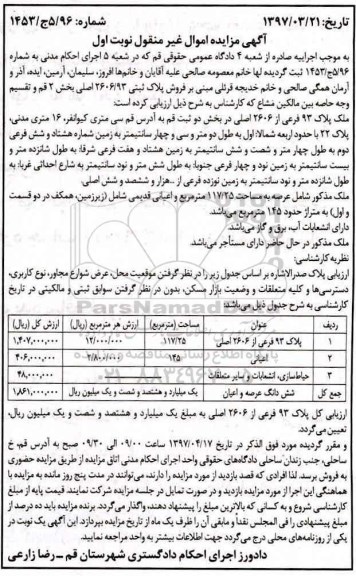 تاریخ: ۱۳۹۷/۰۳/۲۱ شماره: ۵/۹۶ج/۱۴۵۳
آگهی مزایده اموال غیر منقول نوبت اول
به موجب اجراییه صادره از شعبه ۴ دادگاه عمومی حقوقی قم که در شعبه ۵ اجرای احکام مدنی به شماره
۵/۹۶ج/۱۴۵۳ ثبت گردیده لها خانم معصومه صالحی علیه آقایان و خانم‌ها افروز، سلیمان، آرمین، ایده، آذر و
آرمان همگی صالحی و خانم خدیجه قرئلی مبنی بر فروش پلاک ثبتی ۲۶۰۶/۹۳ اصلی بخش ۲ قم و تقسیم
وجه حاصله بین مالکین مشاع که کارشناس به شرح ذیل ارزیابی کرده است:
ملک پلاک ۹۳ فرعی از ۲۶۰۶ اصلی در بخش دو ثبت قم به آدرس قم سی متری کیوانفر، ۱۶ متری مدنی،
پلاک ۲۲ با حدود اربعه شمالا: اول به طول دو متر و سی و چهار سانتیمتر به زمین شماره هشتاد و شش فرعی
دوم به طول چهار متر و شصت و شش سانتیمتر به زمین هشتاد و هفت فرعی شرقا: به طول شانزده متر و
بیست سانتیمتر به زمین نود و چهار فرعی جنوبا: به طول شش متر و نود سانتیمتر به شارع احداثی غربا: به
طول شانزده متر و نود سانتیمتر به زمین نوزده فرعی از ...هزار و ششصد و شش اصلی.
ملک مذکور شامل عرصه به مساحت ۱۱۷/۲۵ مترمربع و اعیانی قدیمی شامل (زیرزمین، همکف در دو قسمت
و اول) به متراژ حدود ۱۴۵ مترمربع می‌باشد.
دارای انشعابات آب، برق و گاز می‌باشد.
ملک مذکور در حال حاضر دارای مستأجر می‌باشد.
نظریه کارشناسی:
ارزیابی پلاک صدرالاشاره بر اساس جدول زیر را در نظر گرفتن موقعیت محل، عرض شوارع مجاور، نوع کاربری،
دسترسی‌ها و کلیه متعلقات و وضعیت بازار مسکن، بدون در نظر گرفتن سوابق ثبتی و مالکیتی در تاریخ
کارشناسی به شرح جدول ذیل می‌باشد:
ردیف عنوان مساحت (مترمربع) ارزش هر مترمربع (ریال) ارزش کل (ریال)
۱ پلاک ۹۳ فرعی از ۲۶۰۶ اصلی ۱۱۷/۲۵ ۱۲/۰۰۰/۰۰۰ ۱,۴۰۷,۰۰۰,۰۰۰
۲ اعیانی ۱۴۵ ۲/۸۰۰/۰۰۰ ۴۰۶,۰۰۰,۰۰۰
۳ حیاط‌سازی، انشعابات و سایر متعلقات ۴۸,۰۰۰,۰۰۰
جمع کل شش دانگ عرصه و اعیان یک میلیارد و هشتصد و شصت و یک میلیون ریال ۱,۸۶۱,۰۰۰,۰۰۰
ارزیابی کل پلاک ۹۳ فرعی از ۲۶۰۶ اصلی به مبلغ یک میلیارد و هشتصد و شصت و یک میلیون ریال،
تعیین می‌گردد.
و مقرر گردیده مورد فوق الذکر در تاریخ ۱۳۹۷/۰۴/۱۷ ساعت ۰۹/۰۰ الی ۰۹/۳۰ صبح به آدرس قم، خ
ساحلی، جنب زندان ساحلی دادگاه‌های حقوقی واحد اجرای احکام مدنی اتاق مزایده از طریق مزایده حضوری
به فروش برسد. لذا افرادی که قصد بازدید از مورد مزایده را دارند، می‌توانند در مدت پنج روز مانده به مزایده با
هماهنگی این اجرا از مورد مزایده بازدید و در صورت تمایل در جلسه مزایده شرکت نمایند. قیمت پایه از مبلغ
کارشناسی شروع و به کسانی که بالاترین مبلغ را پیشنهاد دهند، واگذار می‌گردد. برنده مزایده باید ده درصد از
مبلغ پیشنهادی را فی المجلس نقدا و مابقی آن را ظرف یک ماه از تاریخ مزایده بپردازد. این آگهی یک نوبت در
یکی از روزنامه‌های محلی درج می‌گردد جهت اطلاعات بیشتر به واحد مراجعه نمایید.
دادورز اجرای احکام دادگستری شهرستان قم – رضا زارعی